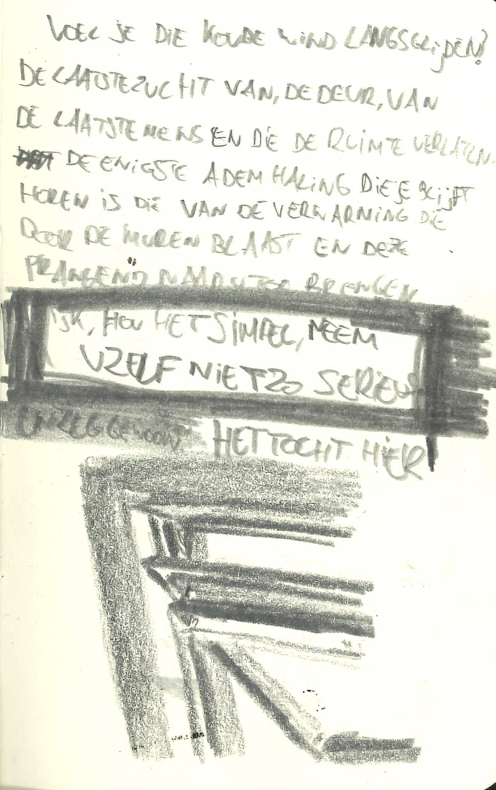 VOEL JE DIE KOUDE WIND LANGSGLIJDEN?
DE LAATSTE ZUCHT VAN, DE DEUR, VAN
DE LAATSTE MENSEN DIE DE RUIMTE VERLATEN.
DE ENIGSTE ADEMHALING DIE JE BLIJFT
HOREN IS DIE VAN DE VERWARMING DIE
DOOR DE MUREN BLAAST EN DEZE
BRENGEN
HOU HET SIMPEL, NEEM
UZELF NIET ZO SERIEUS
EN ZEG GEWOON HET TOCHT HIER